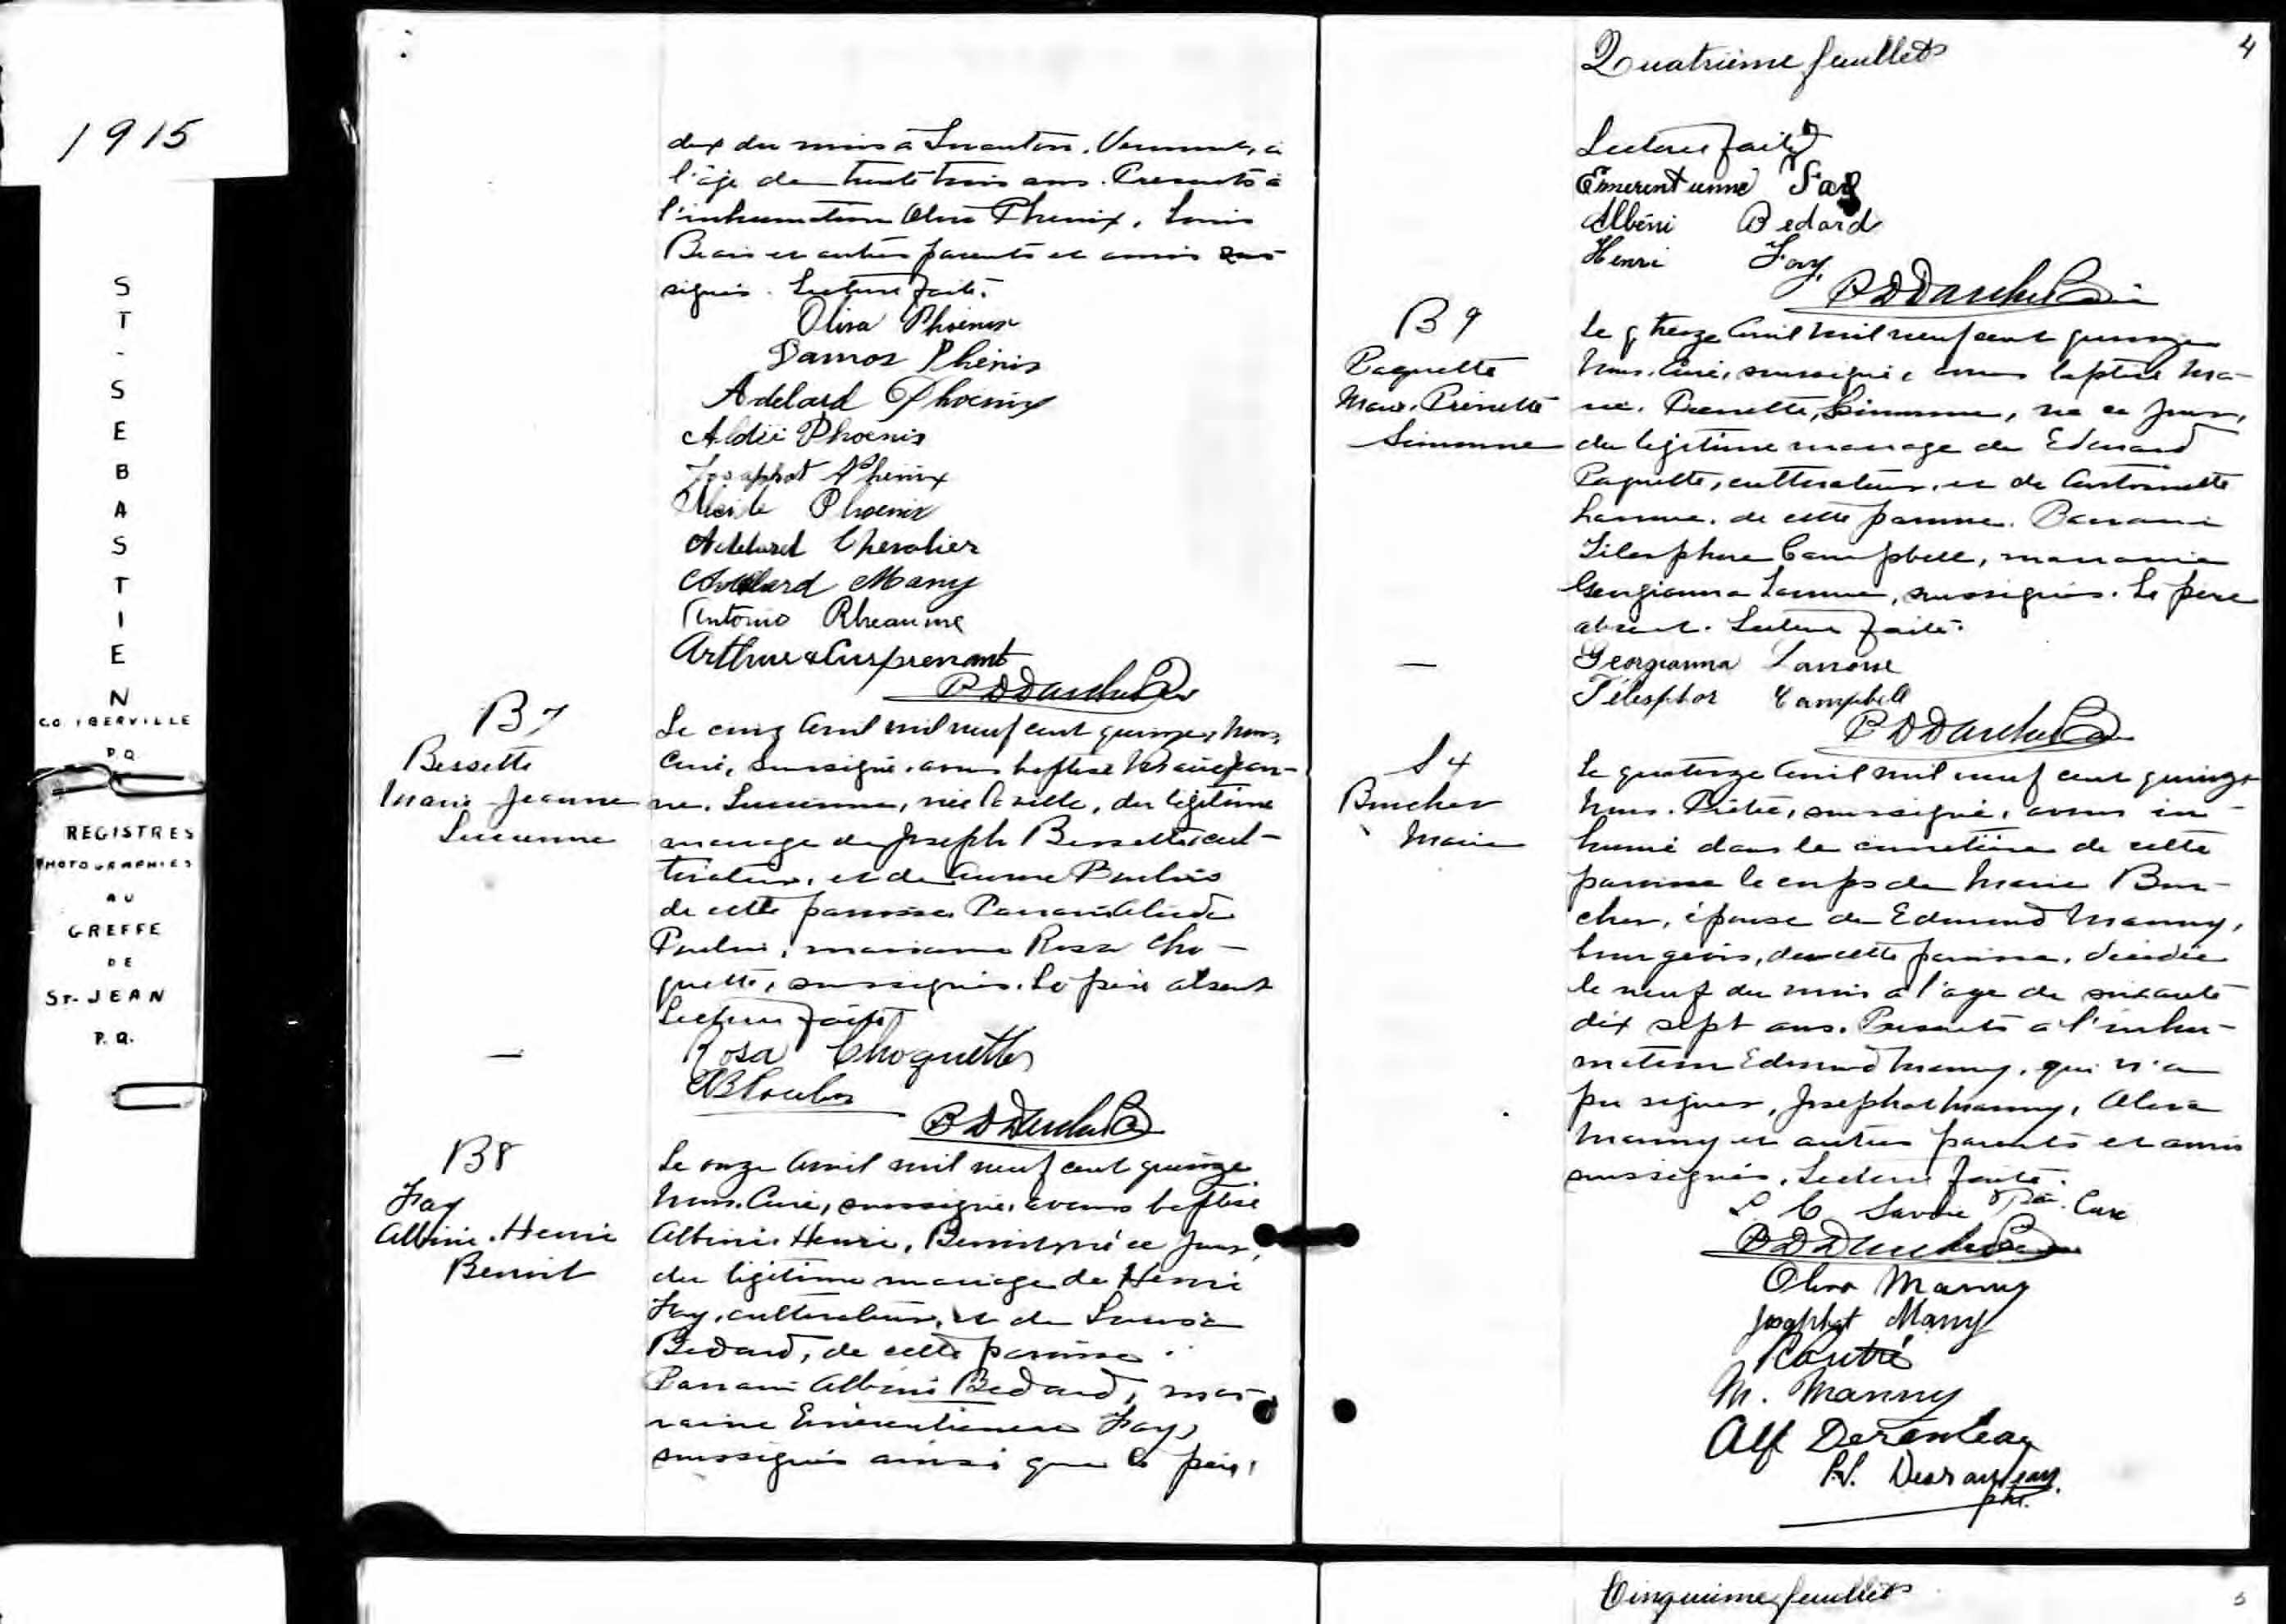 1915
ST-SEBASTIEN
CO IBERVILLE
P.Q.
REGISTRES
PHOTOGRAPHIES
AU
GREFFE
DE
ST-JEAN
P.Q.
deux du mois à Swanton, Vermont, à
l'âge de trente trois ans. Presents à
l'inhumation Oliva Phenix, Louis
et autres parents et amis sous-
signés. Lecture faite.
Oliva Phoenix
Damas Phénix
Adelard Phoenix
Aldéi Phoenix
Josaphat Phenix
Phoenix
Adelard Chevalier
Adelard Many
Antonio Rheaume
Arthur Surprenant
B 7
Bessette
Marie-Jeanne
Lucienne
Le cinq Avril mil neuf cent quinze, Nous,
Curé, soussigné, avons baptisé Marie Jean-
ne, Lucienne, née la veille, du légitime
mariage de Joseph Bessette, cul-
tivateur, et de
de cette paroisse. Parrain
marraine Rosa Cho-
quette, soussignés. Le père absent
Lecture faite
Rosa Choquette
B8
Fay
Albini. Henri
Benoit
Le onze Avril mil neuf cent quinze
Nous, Curé, soussigné, avons baptisé
Albini Henri, Benoit, né ce jour,
du légitime mariage de Henri
Fay, cultivateur, et de
Bedard, de cette paroisse.
Parrain Albini Bedard, mar-
raine Emérentienne Fay,
soussignés ainsi que le père.
4
Quatrième feuillet
Lecture faite
Emerentienne Fay
Albéni Bedard
Henri Fay
B 9
Paquette
Marie. Prénette
Simonne
Le treize Avril mil neuf cent quinze
Nous, Curé, soussigné, avons baptisé Ma-
rie, Simonne, née ce jour,
du légitime mariage de Edouard
Paquette, cultivateur, et de Antoinette
de cette paroisse. Parrain
Télesphore Campbell, marraine
Georgianna soussignés. Le père
absent. Lecture faite.
Georgianna
Télesphor Campbell
S 4
Bucher
Marie
Le quatorze Avril mil neuf cent quinze
Nous, Prêtre, soussigné, avons in-
humé dans le cimetière de cette
paroisse le corps de Marie Bu-
cher, épouse de Edmond Manny,
bourgeois, de cette paroisse, décédée
le neuf du mois à l'age de soixante
dix sept ans. Presents à l'inhu-
mation Edmond Manny, qui n'a
pu signer, Josephat Manny, Oliva
Manny et autres parents et amis
soussignés. Lecture faite.
L. C. Savoie Curé
Oliva Manny
Josaphat Many
M. Manny
Alf
Cinquième feuillet
5